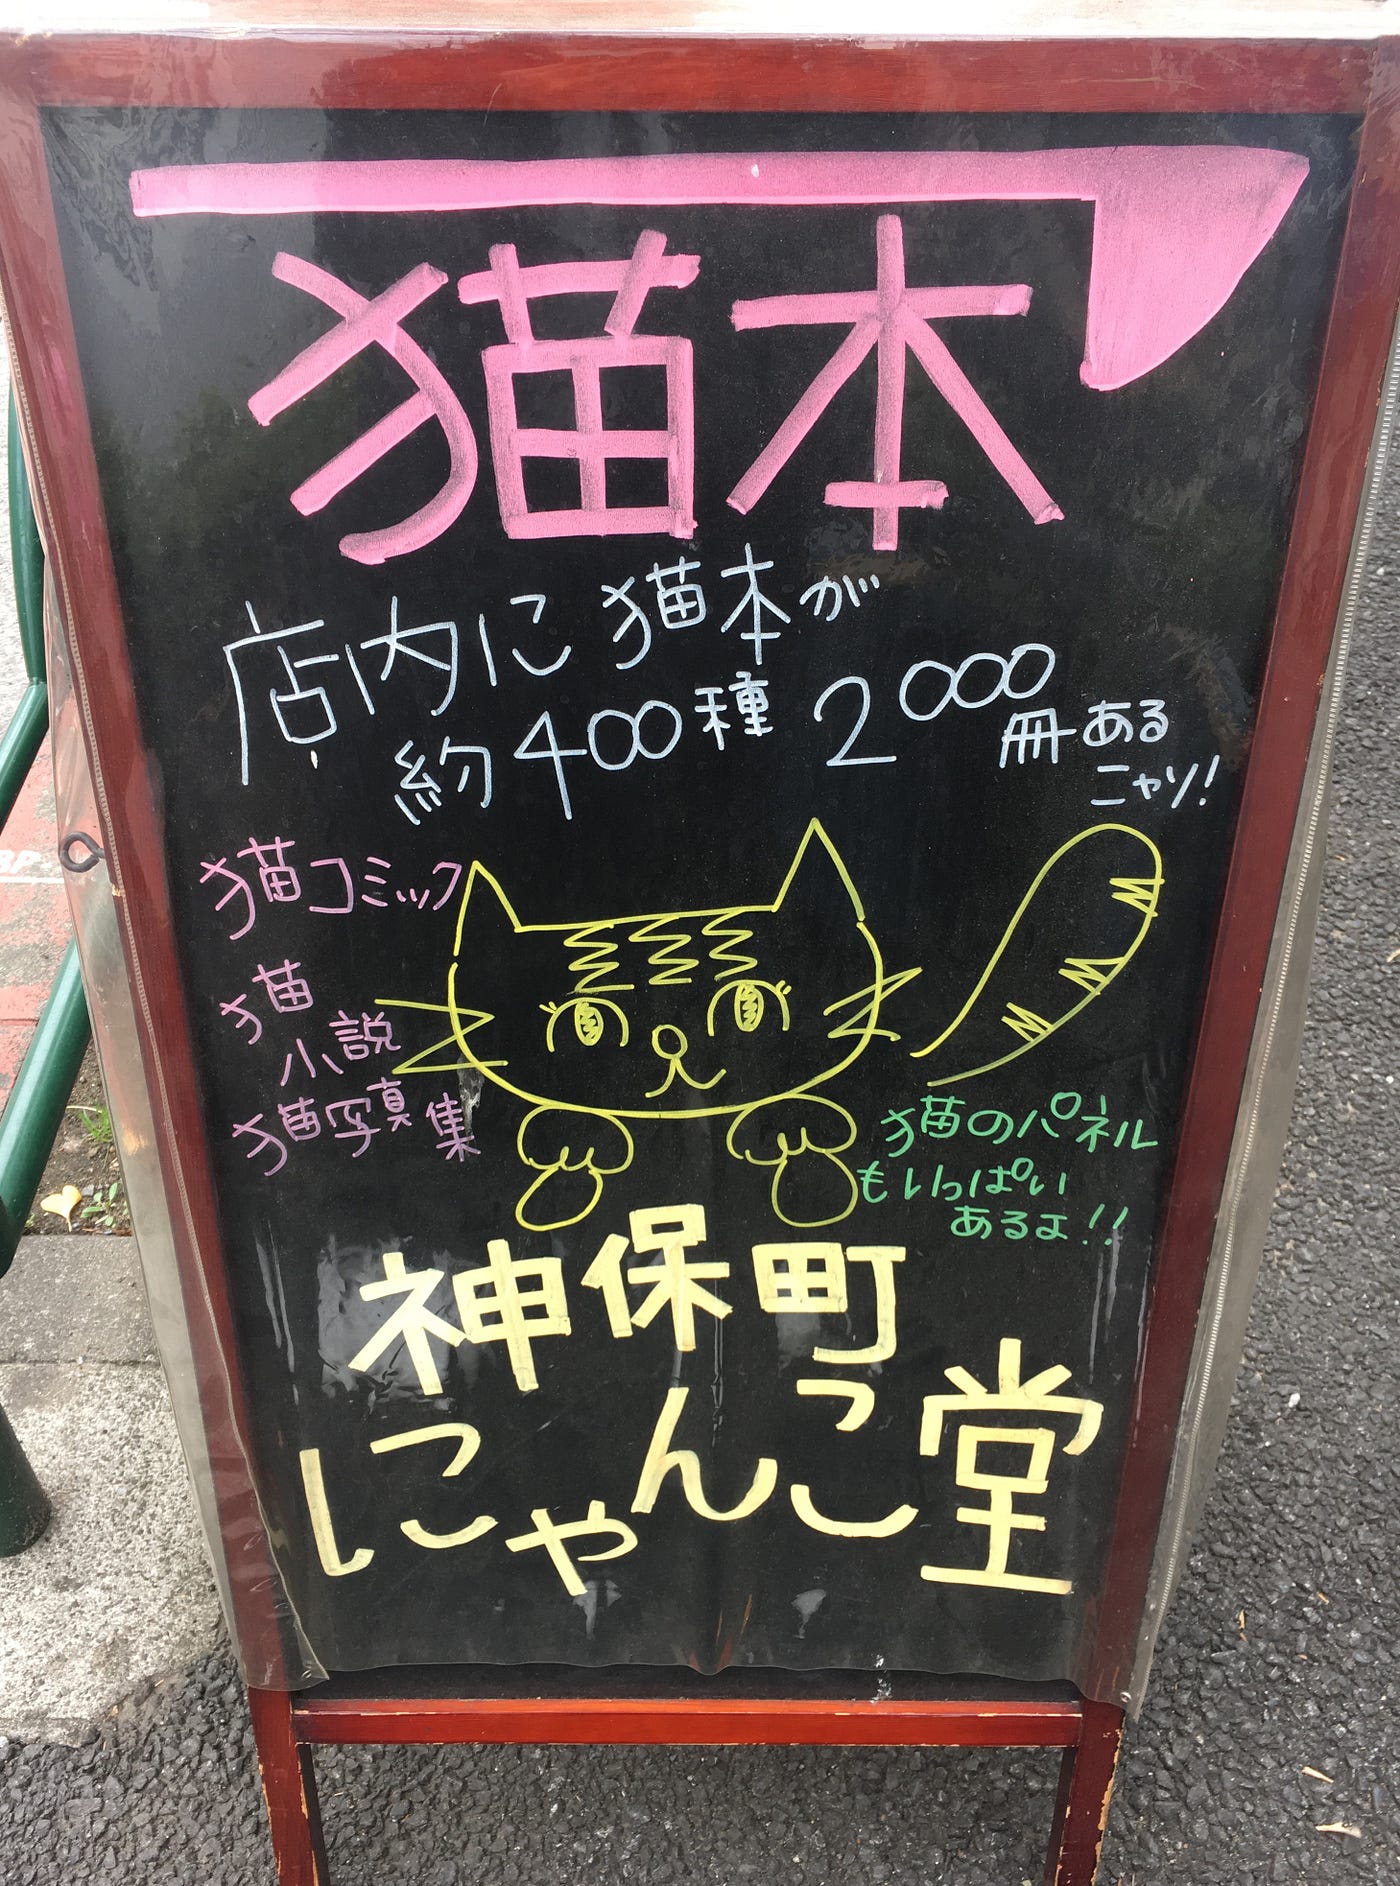 猫本
店内に猫本が
約400種2000冊ある
ニャソ!
猫コミック
猫
小説
猫写真集
猫のパネル
もいっぱい
あるよ!!
神保町
にゃんこ堂